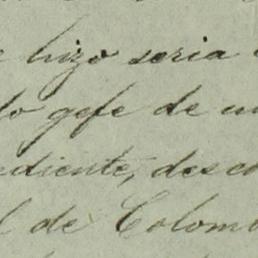 hizo seria
gefe de un
diente, desco
l de Colom